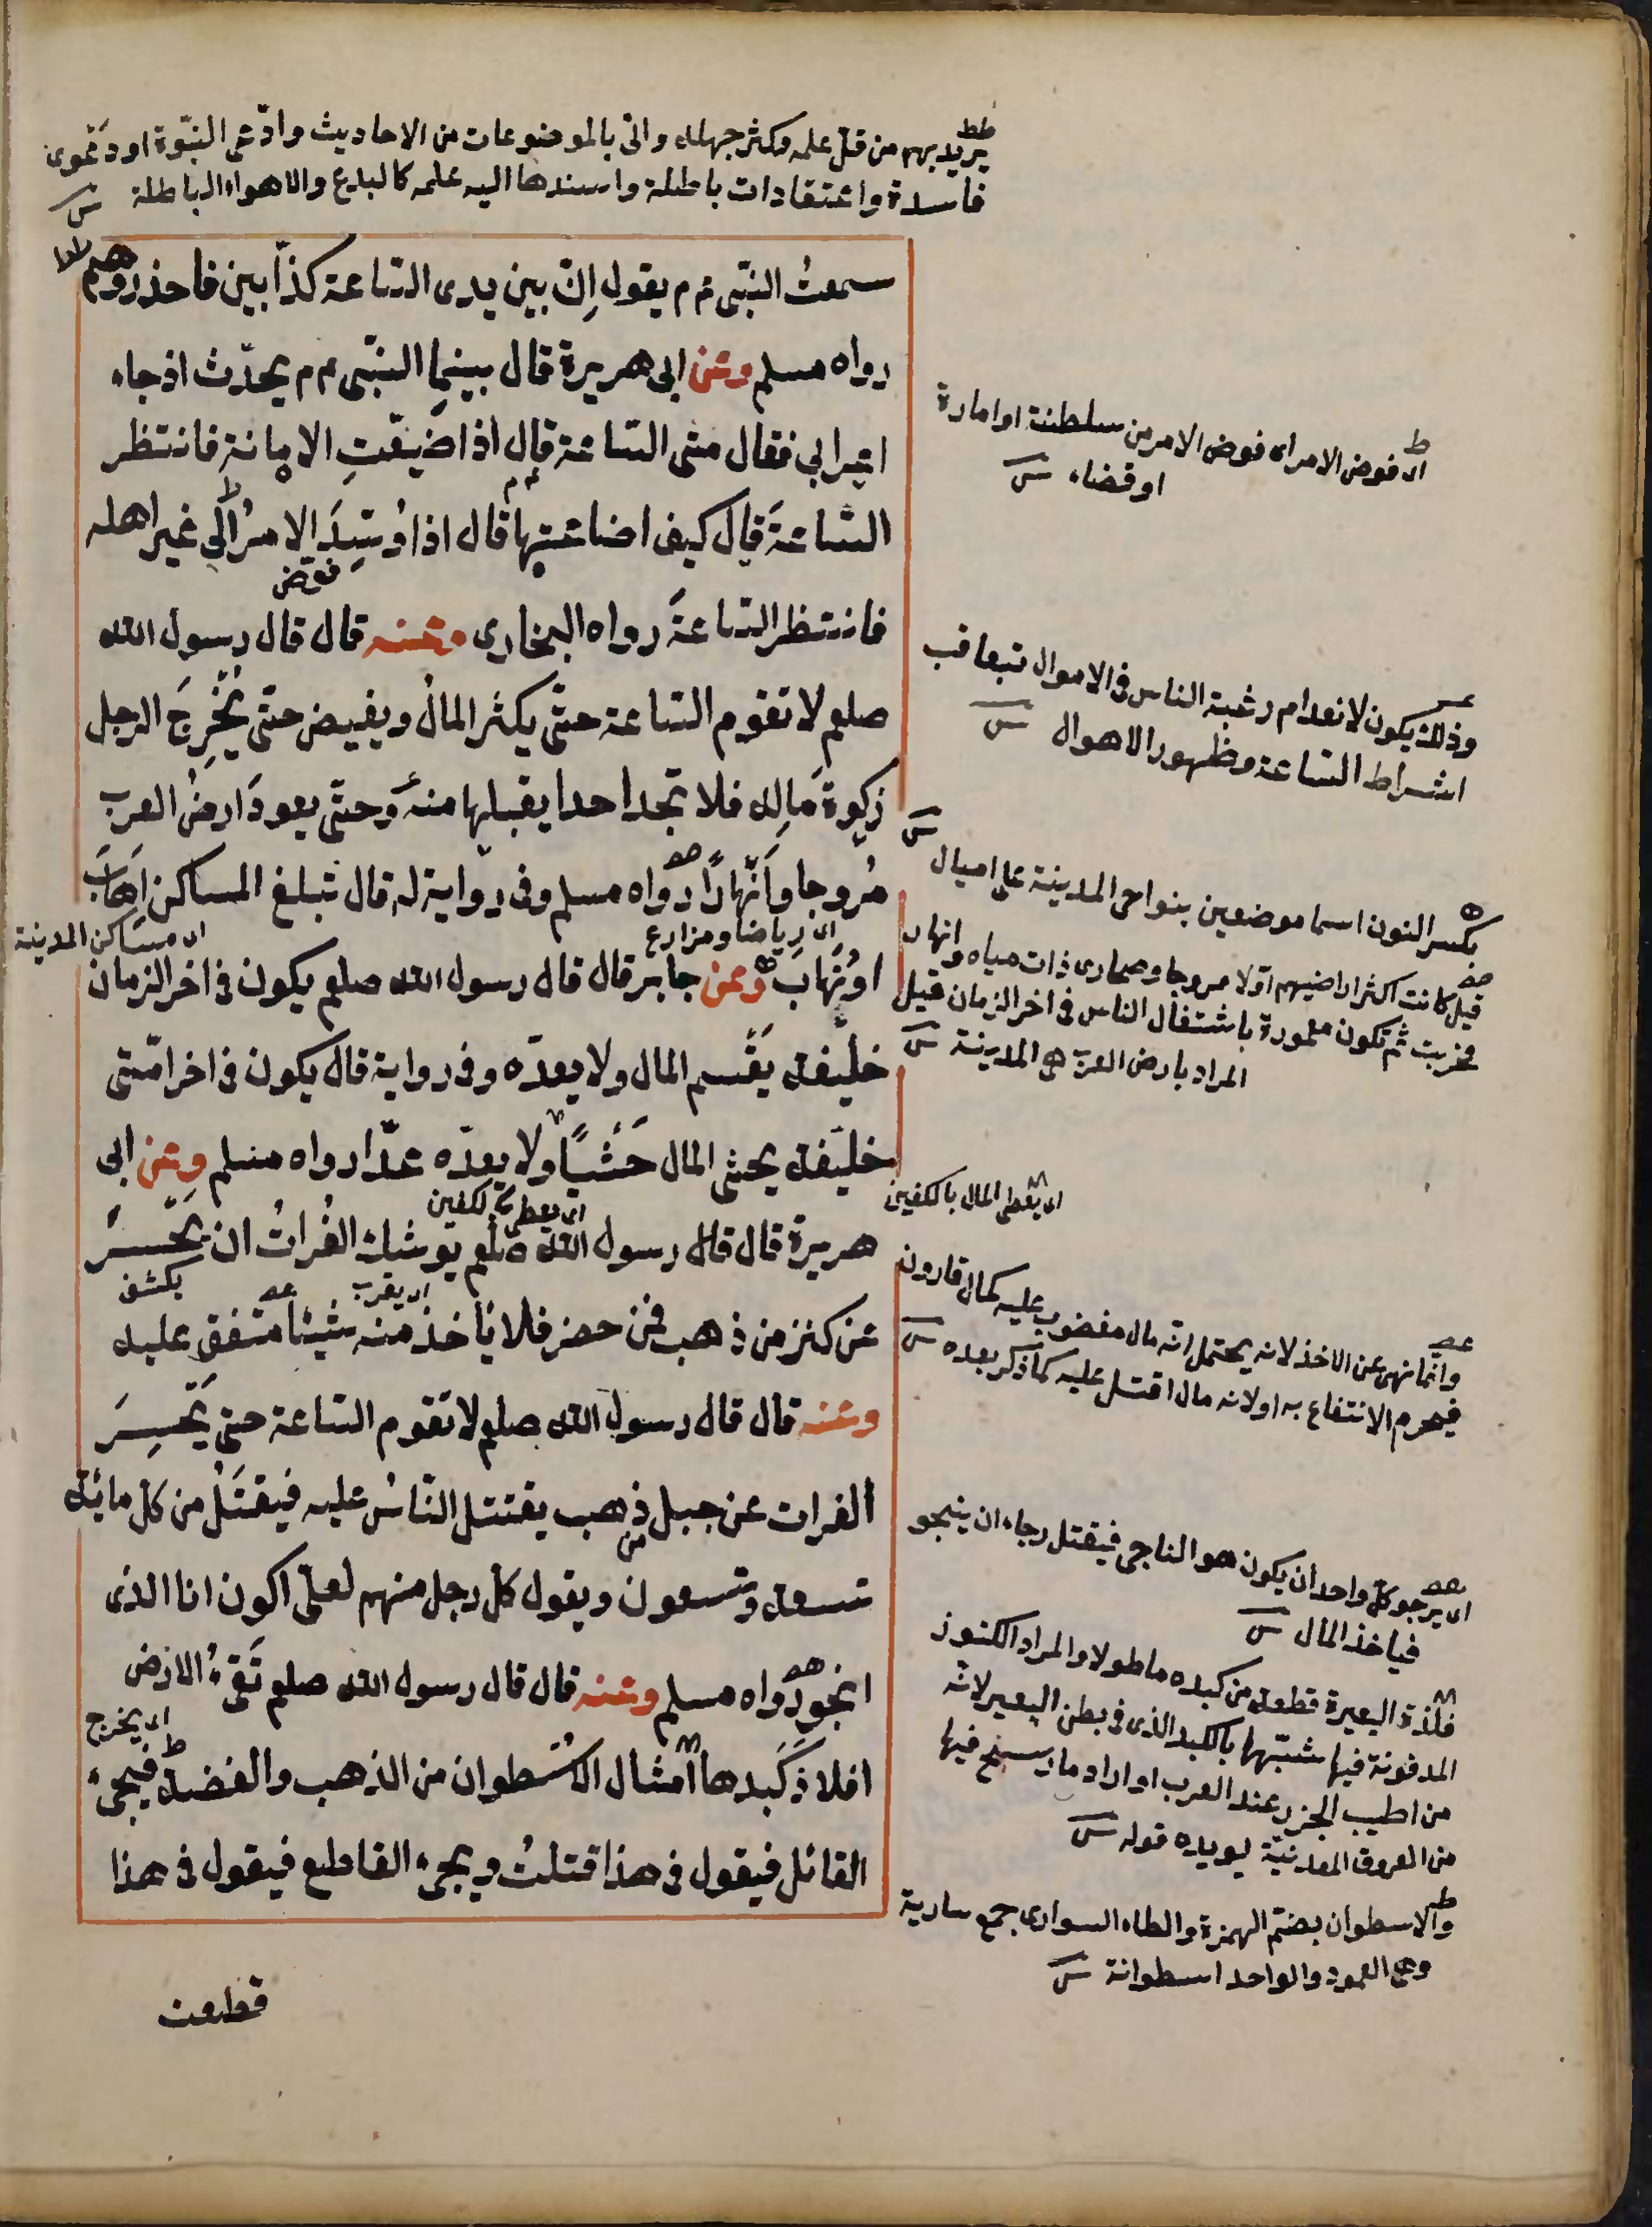 يريد بهم من قل علمه وكثر جهله واتى بالموضوعات من الاحاديث وادعى النبوة او دعوى
فاسدة واعتقادات باطلة واسندها اليه علمه كالبدع والاهواء الباطلة
سمعتُ النبّى عم يقول اِنّ بين يدى السّاعة كذّابين فاحذروهم
رواه مسلم وعن ابى هريرة قال بينما النبّى عم يحدّث اذ جاء
اعرابي فقال متى السّاعة قال اذا ضيّعتِ الامانة فانتظر
السّاعةَ قال كيف اضاعتها قال اذا وُسّدَ الامرُ الى غير اهله
فوّض
فانتظر السّاعةَ رواه البخارى وعنه قال قال رسول الله
صلعم لا تقوم السّاعة حتّى يكثر المالُ ويفيض حتّى يُخْرِجَ الرجل
زكوةَ مالِه فلا تجد احدا يقبلها منه وحتّى يعودَ ارضُ العرب
مُروجا وانْهارًا رواه مسلم وفى رواية له قال تبلغ المساكن اِهابَ
اى رياضا ومزارع
اى مساكن المدينة
او نِهاب وعن جابر قال قال رسول الله صلعم يكون فى اخر الزمان
خليفة يَقْسم المال ولا يعدّه وفى رواية قال يكون فى اخر امّتى
خليفة يحثى المال حَثْيًا ولا يعدّه عدّا رواه مسلم وعن ابى
اى يعطى بالكفين
هريرة قال قال رسول الله صلعم يوشك الفُراتُ ان يَحْسِرَ
اى يقرب
يكشف
عن كنز من ذهب فمن حضر فلا يأخذ منه شيئا متفق عليه
وعنه قال قال رسول الله صلعم لا تقوم السّاعة حتى يَحْسِرَ
الفرات عن جبل من ذهب يقتتل النّاسُ عليه فيُقتَلُ من كل مائة
تسعة وتسعون ويقول كل رجل منهم لعلّى اكون انا الذى
انجو رواه مسلم وعنه قال قال رسول الله صلعم تَقىءُ الارضُ
اى يخرج
افلاذ كَبِدها امثال الاُسْطوان من الذهب والفضة فيجىءُ
القاتل فيقول فى هذا قتلتُ ويجىء القاطع فيقول فى هذا
قطعت
اى فوض الامر اى فوض الامر من سلطنة او امارة
او قضاء
وذلك يكون لانعدام رغبة الناس فى الاموال بتعاقب
اشراط السّاعة وظهور الاهوال
بكسر النون اسما موضعين بنواحى المدينة على اميال
قيل كانت اكثر اراضيهم اوّلا مروجا وصحارى ذات مياه وانهار
فخربت ثم تكون معمورة باشتغال الناس فى اخر الزمان قيل
المراد بارض العرب هى المدينة
اى يعطى المال بالكفين
وانما نهى عن الاخذ لانه يحتمل انّه مال مغضوب عليه كمال قارون
فيحرم الانتفاع به او لانه مال اقتتل عليه كما ذكر بعده
اى يرجو كلّ واحد ان يكون هو الناجى فيقتل رجاء ان ينجو
فياخذ المال
فلذة البعيرة قطعة من كبده ما طولا والمراد الكنوز
المدفونة فيها شبّهها بالكبد الذى فى بطن البعير لانّه
من اطيب الجزر عند العرب او اراد ما رسخ فيها
من العروق المعدنيّة يويده قوله
والاسطوان بضم الهمزة والطاء السوارى جمع سارية
وهى العمود والواحد اسطوانة